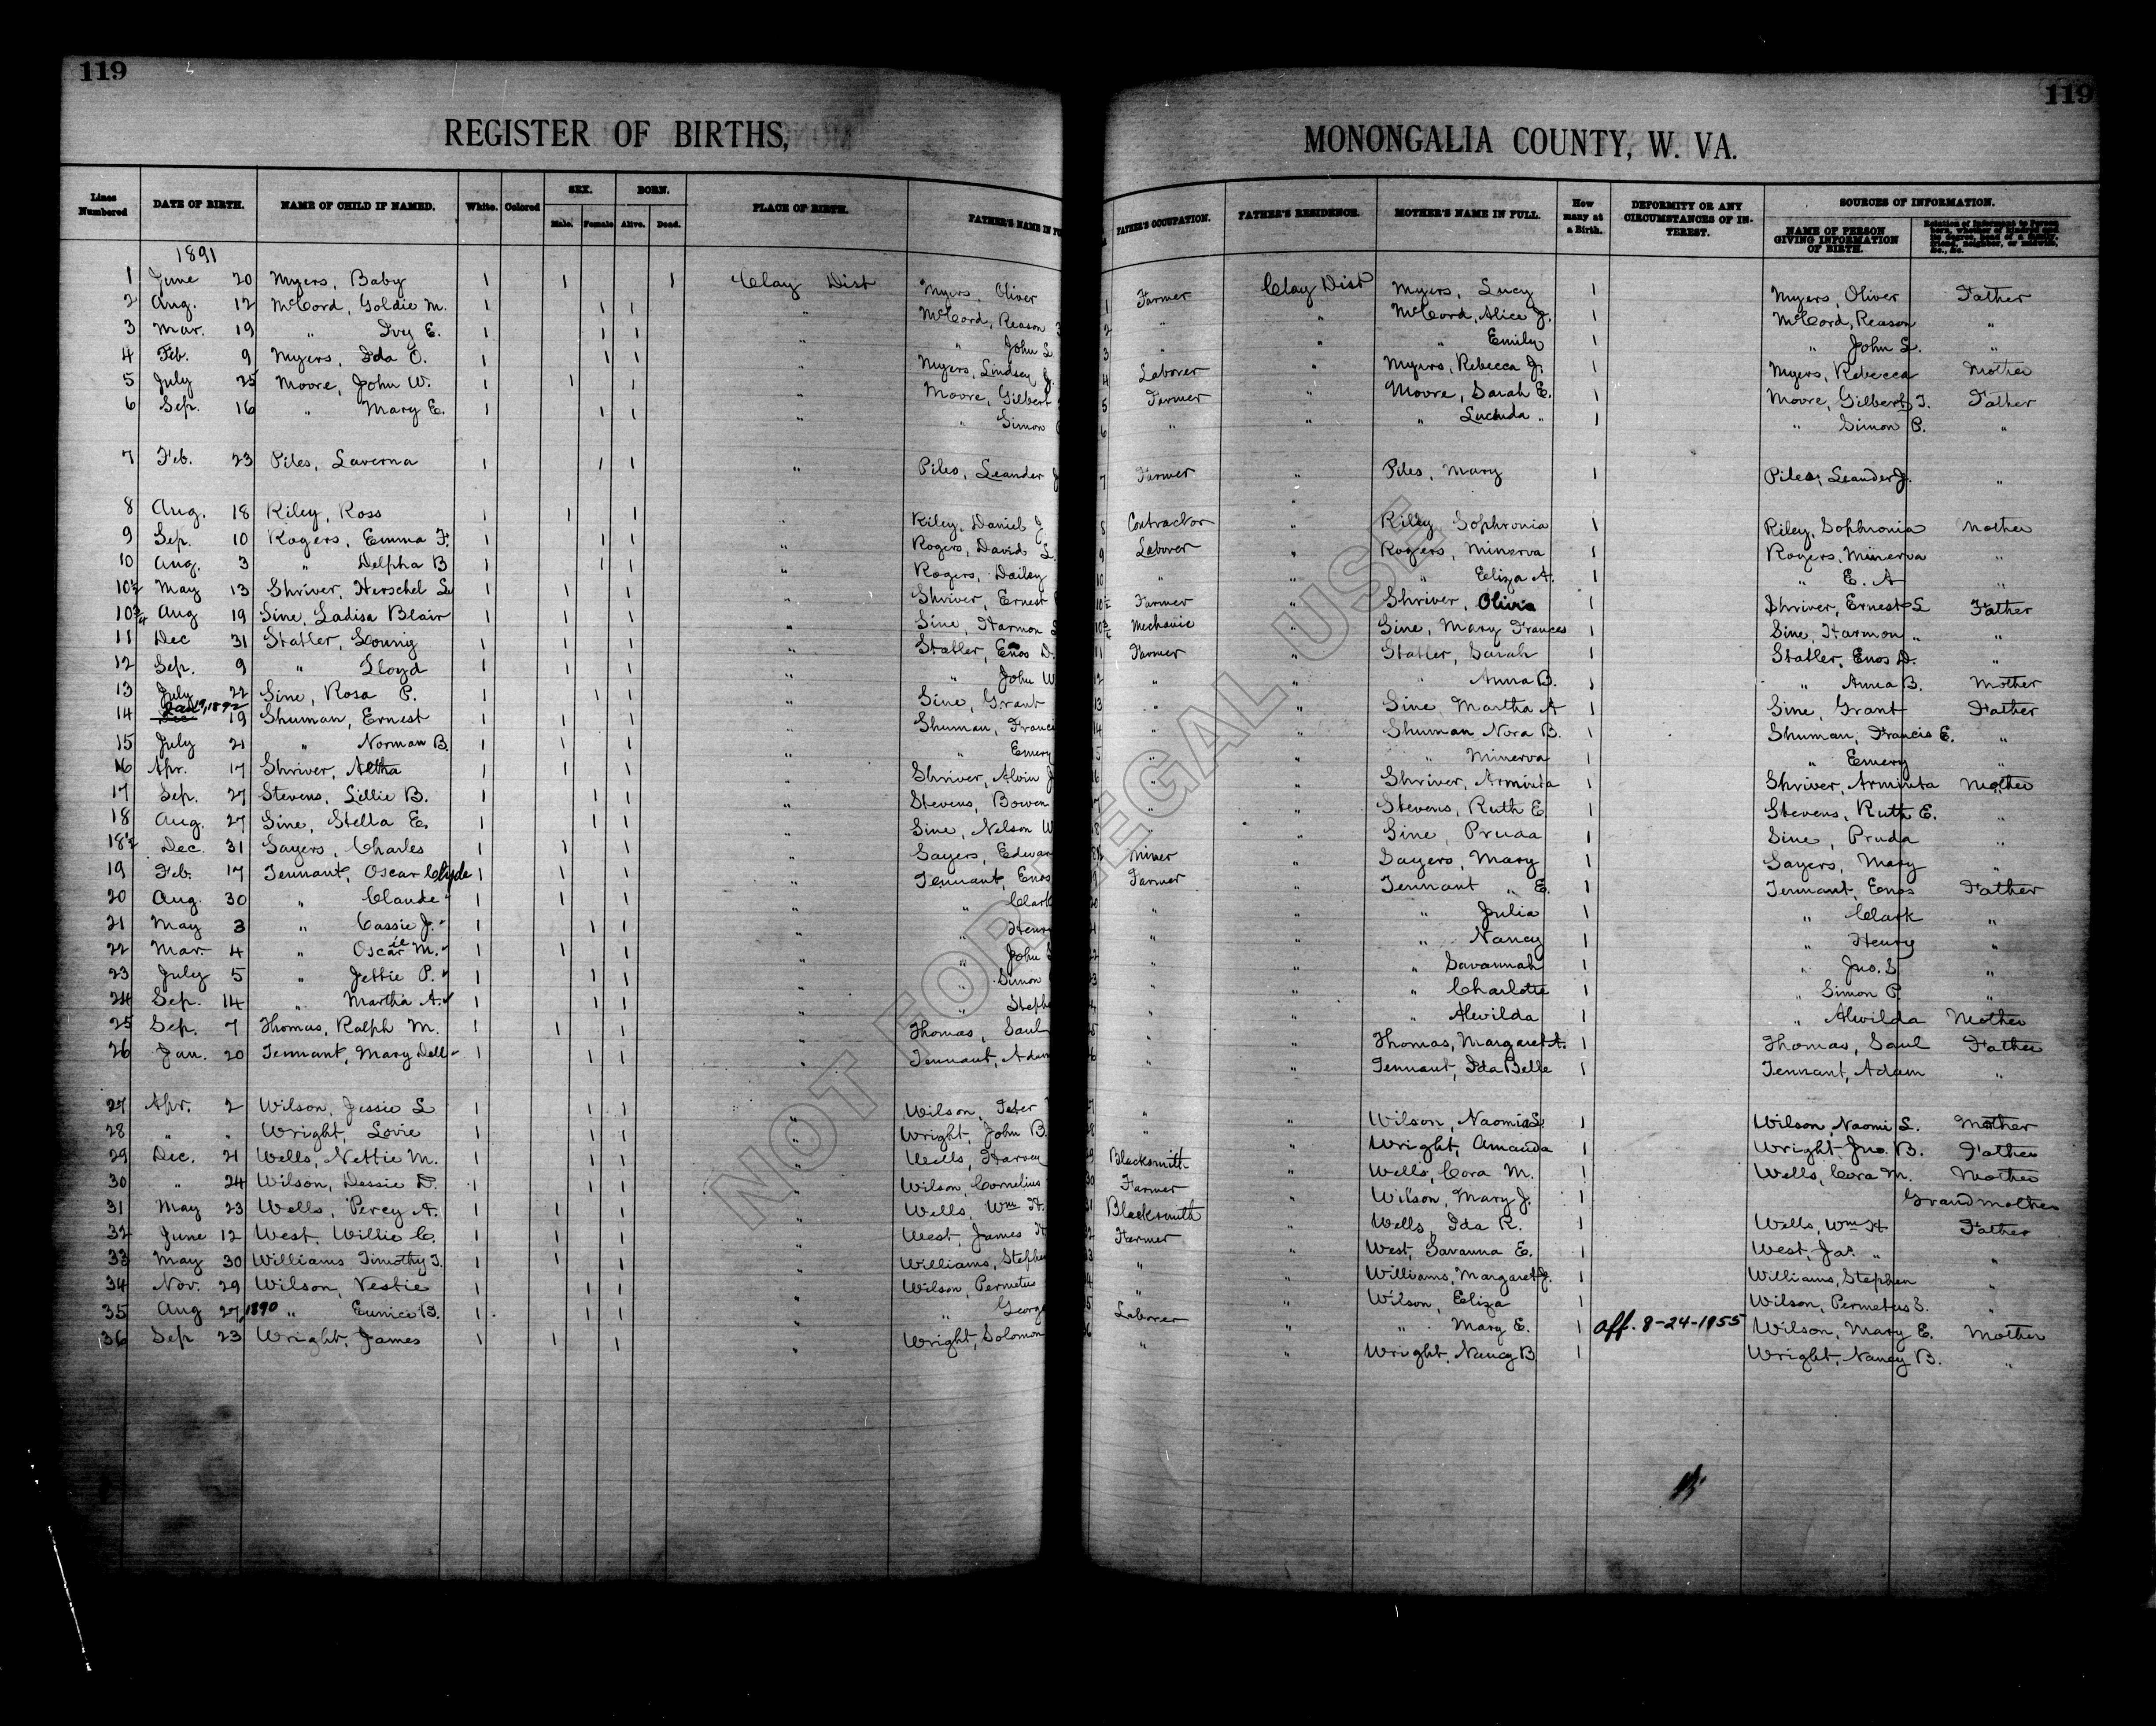 119
119
REGISTER OF BIRTHS, MONONGALIA COUNTY, W. VA.
Lines Numbered DATE OF BIRTH. NAME OF CHILD IF NAMED. White. Colored SEX. Male. Female BORN. Alive. Dead. PLACE OF BIRTH. FATHER'S NAME IN FU FATHER'S OCCUPATION. FATHER'S RESIDENCE. MOTHER'S NAME IN FULL. How many at a Birth. DEFORMITY OR ANY CIRCUMSTANCES OF INTEREST. SOURCES OF INFORMATION. NAME OF PERSON GIVING INFORMATION OF BIRTH. Relation of Informant to Person born, whether of kindred and its degree, head of a family, friend, neighbor, or midwife, &c., &c.
1891
1 June 20 Myers, Baby 1 1 1 Clay Dist Myers, Oliver 1 Farmer Clay Dist Myers, Lucy 1 Myers, Oliver Father
2 Aug. 12 McCord, Goldie M. 1 1 1 " McCord, Reason 2 " " McCord, Alice J. 1 McCord, Reason "
3 Mar. 19 " Ivy E. 1 1 1 " " John L 3 " " " Emily 1 " John L. "
4 Feb. 9 Myers, Ida O. 1 1 1 " Myers, Lindsey J. 4 Laborer " Myers, Rebecca J. 1 Myers, Rebecca Mother
5 July 25 Moore, John W. 1 1 1 " Moore, Gilbert 5 Farmer " Moore, Sarah E. 1 Moore, Gilbert T. Father
6 Sep. 16 " Mary E. 1 1 1 " " Simon 6 " " " Lucinda " 1 " Simon P. "
7 Feb. 23 Piles, Laverna 1 1 1 " Piles, Leander J 7 Farmer " Piles, Mary 1 Piles, Leander J. "
8 Aug. 18 Riley, Ross 1 1 1 " Riley, Daniel J 8 Contractor " Riley Sophronia 1 Riley, Sophronia Mother
9 Sep. 10 Rogers, Emma F. 1 1 1 " Rogers, David L. 9 Laborer " Rogers, Minerva 1 Rogers, Minerva "
10 Aug. 3 " Delpha B 1 1 1 " Rogers, Dailey 10 " " " Eliza A. 1 " E. A "
10½ May 13 Shriver, Herschel Le 1 1 1 " Shriver, Ernest 10½ Farmer " Shriver, Olivia 1 Shriver, Ernest L Father
10¾ Aug 19 Sine, Ladisa Blair 1 1 1 " Sine, Harmon 10¾ Mechanic " Sine, Mary Frances 1 Sine, Harmon " "
11 Dec 31 Statler, Lounig 1 1 1 " Statler, Enos D. 11 Farmer " Statler, Sarah 1 Statler, Enos D. "
12 Sep. 9 " Lloyd 1 1 1 " " John W 12 " " " Anna B. 1 " Anna B. Mother
13 July 22 Sine, Rosa P. 1 1 1 " Sine, Grant 13 " " Sine Martha A 1 Sine, Grant Father
14 Jan 19, 1892 Dec 19 Shuman, Ernest 1 1 1 " Shuman, Franci 14 " " Shuman Nora B. 1 Shuman, Francis E. "
15 July 21 " Norman B. 1 1 1 " " Emery 15 " " " Minerva 1 " Emery "
16 Apr. 17 Shriver, Altha 1 1 1 " Shriver, Alvin J 16 " " Shriver, Arminta 1 Shriver, Arminta Mother
17 Sep. 27 Stevens, Lillie B. 1 1 1 " Stevens, Bowen 17 " " Stevens, Ruth E 1 Stevens, Ruth E. "
18 Aug. 27 Sine, Stella E. 1 1 1 " Sine, Nelson W 18 " " Sine, Pruda 1 Sine, Pruda "
18½ Dec. 31 Sayers, Charles 1 1 1 " Sayers, Edwar 18½ Miner " Sayers, Mary 1 Sayers, Mary "
19 Feb. 17 Tennant, Oscar Clyde 1 1 1 " Tennant, Enos 19 Farmer " Tennant " E. 1 Tennant, Enos Father
20 Aug. 30 " Claude 1 1 1 " " Clark 20 " " " Julia 1 " Clark "
21 May 3 " Cassie J. 1 1 1 " " Henry 21 " " " Nancy 1 " Henry "
22 Mar. 4 " Oscar ie M. 1 1 1 " " John S 22 " " " Savannah 1 " Jno. S "
23 July 5 " Jettie P. 1 1 1 " " Simon 23 " " " Charlotte 1 " Simon P. "
24 Sep. 14 " Martha A. 1 1 1 " " Steph 24 " " " Alwilda 1 " Alwilda Mother
25 Sep. 7 Thomas, Ralph M. 1 1 1 " Thomas, Saul 25 " " Thomas, Margaret A. 1 Thomas, Saul Father
26 Jan. 20 Tennant, Mary Dell 1 1 1 " Tennant, Adam 26 " " Tennant, Ida Belle 1 Tennant, Adam "
27 Apr. 2 Wilson, Jessie L 1 1 1 " Wilson, Peter 27 " " Wilson, Naomi L. 1 Wilson, Naomi L. Mother
28 " " Wright, Lovie 1 1 1 " Wright, John B. 28 " " Wright, Amanda 1 Wright, Jno. B. Father
29 Dec. 21 Wells, Nettie M. 1 1 1 " Wells, Harvey 29 Blacksmith " Wells, Cora M. 1 Wells, Cora M. Mother
30 " 24 Wilson, Dessie D. 1 1 1 " Wilson, Cornelius 30 Farmer " Wilson, Mary J. 1 Grandmother
31 May 23 Wells, Percy A. 1 1 1 " Wells, Wm H. 31 Blacksmith " Wells, Ida R. 1 Wells, Wm H Father
32 June 12 West, Willie C. 1 1 1 " West, James H 32 Farmer " West, Savanna E. 1 West, Jas. " "
33 May 30 Williams Timothy T. 1 1 1 " Williams, Stephen 33 " " Williams, Margaret J. 1 Williams, Stephen "
34 Nov. 29 Wilson, Vestie 1 1 1 " Wilson, Permetus 34 " " Wilson, Eliza 1 Wilson, Permetus S. "
35 Aug 27, 1890 " Eunice B. 1 1 1 " " George 35 Laborer " " Mary E. 1 aff. 8-24-1955 Wilson, Mary E. Mother
36 Sep 23 Wright, James 1 1 1 " Wright, Solomon 36 " " Wright, Nancy B 1 Wright, Nancy B. "
NOT FOR LEGAL USE